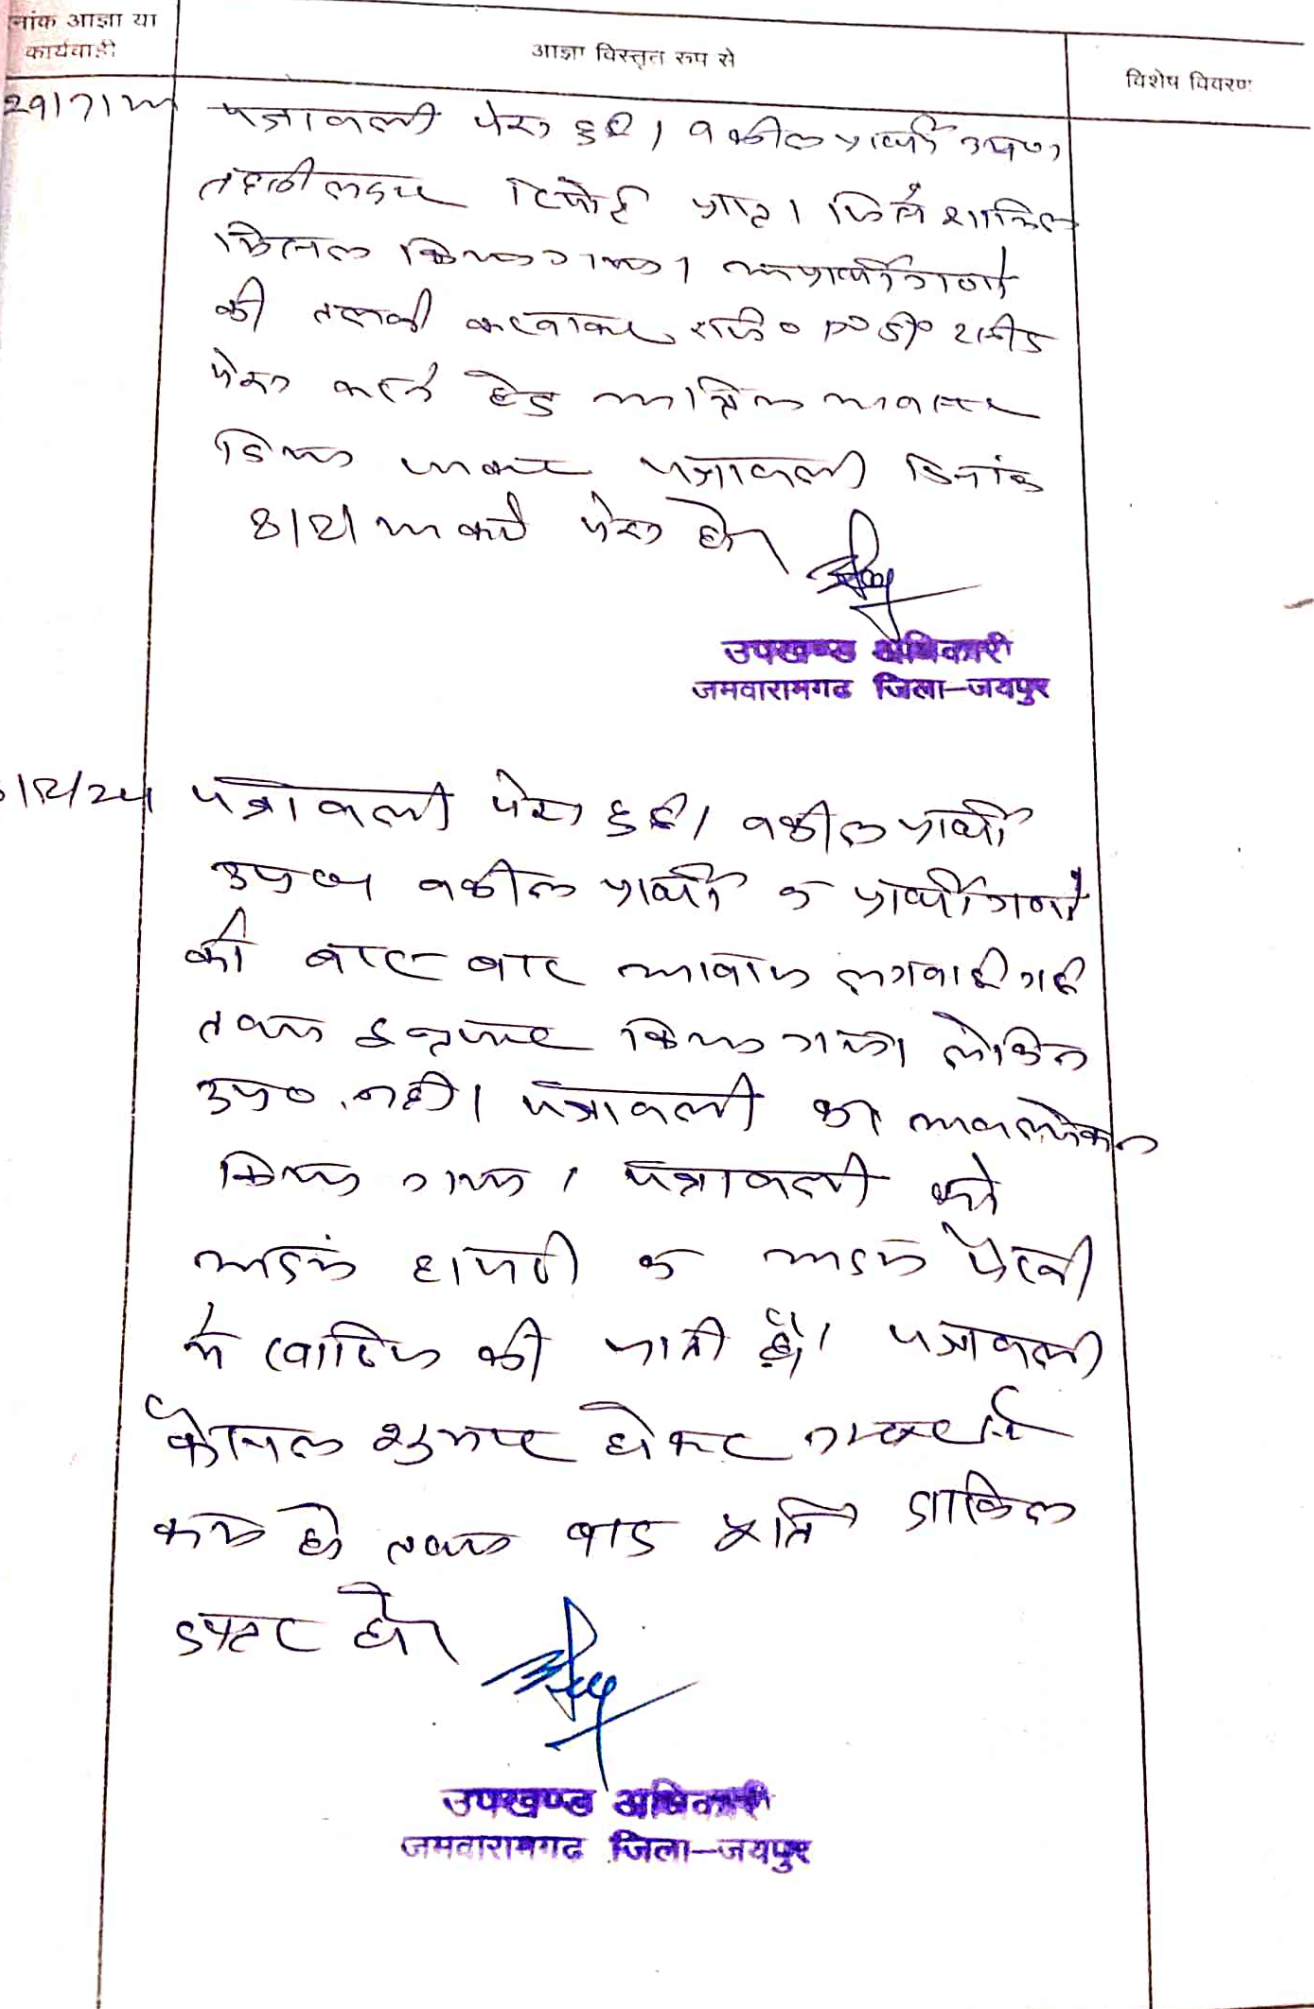 नांक आज्ञा या
कार्यवाही
आज्ञा विस्तृत रूप से
विशेष विवरण
29/7/24 पत्रावली पेश हुई। वकील प्रार्थी उप०।
तहसीलदार रिपोर्ट प्राप्त। जिसे शामिल
मिसल किया गया। अप्रार्थीगणों
की तलबी करवाकर रजि० ए० डी० रसीद
पेश करने हेतु अन्तिम अवसर
दिया जाकर पत्रावली दिनांक
को पेश हो।
उपखण्ड अधिकारी
जमवारामगढ जिला-जयपुर
/12/24 पत्रावली पेश हुई। वकील प्रार्थी
उप० वकील प्रार्थी व प्रार्थीगणों
की बार-बार आवाज लगवाई गई
तथा इन्तजार किया गया लेकिन
उप० नही। पत्रावली का अवलोकन
किया गया। पत्रावली को
अदम हाजरी व अदम पैरवी
में खारिज की जाती है। पत्रावली
फैसल शुमार होकर नम्बर से
कम हो तथा बाद दाखिल
दफ्तर हो।
उपखण्ड अधिकारी
जमवारामगढ जिला-जयपुर